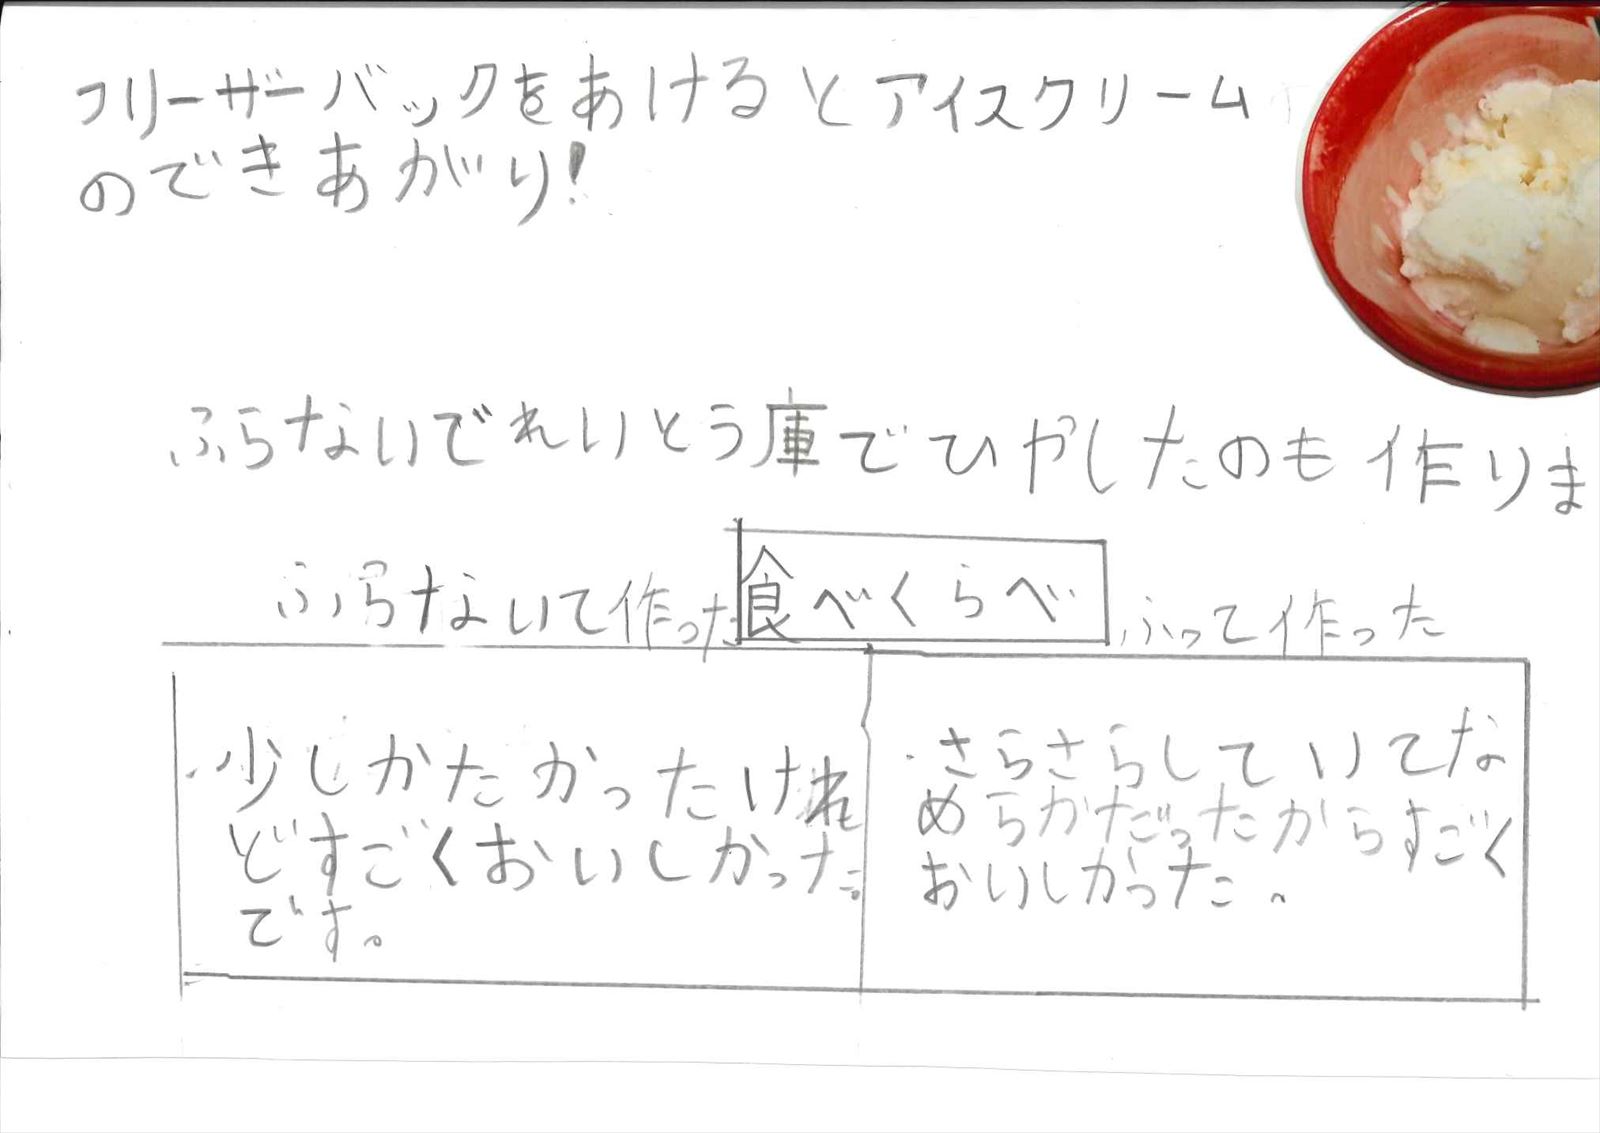 フリーザーバックをあけるとアイスクリーム
のできあがり!
ふらないでれいとう庫でひやしたのも作りま
食べくらべ
ふらないて作った
ふって作った
・少しかたかったけれ
どすごくおいしかった
です。
・さらさらしていてな
めらかだったからすごく
おいしかった。